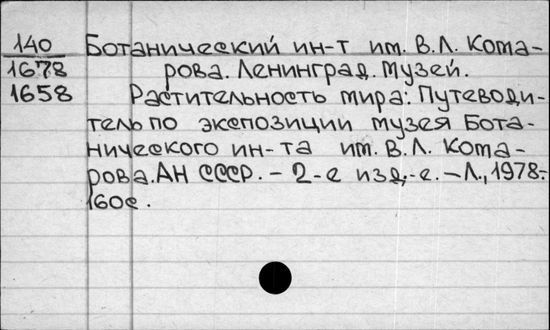 140 Ботанический ин-т им. В.Л. Кома-
1678 рова. Ленинград. Музей.
1658 Растительность мира: Путеводи-
тель по экспозиции музея Бота-
нического ин-та им. В.Л. Кома-
рова. АН СССР. – 2-е изд,-е. – Л., 1978.-
160с.